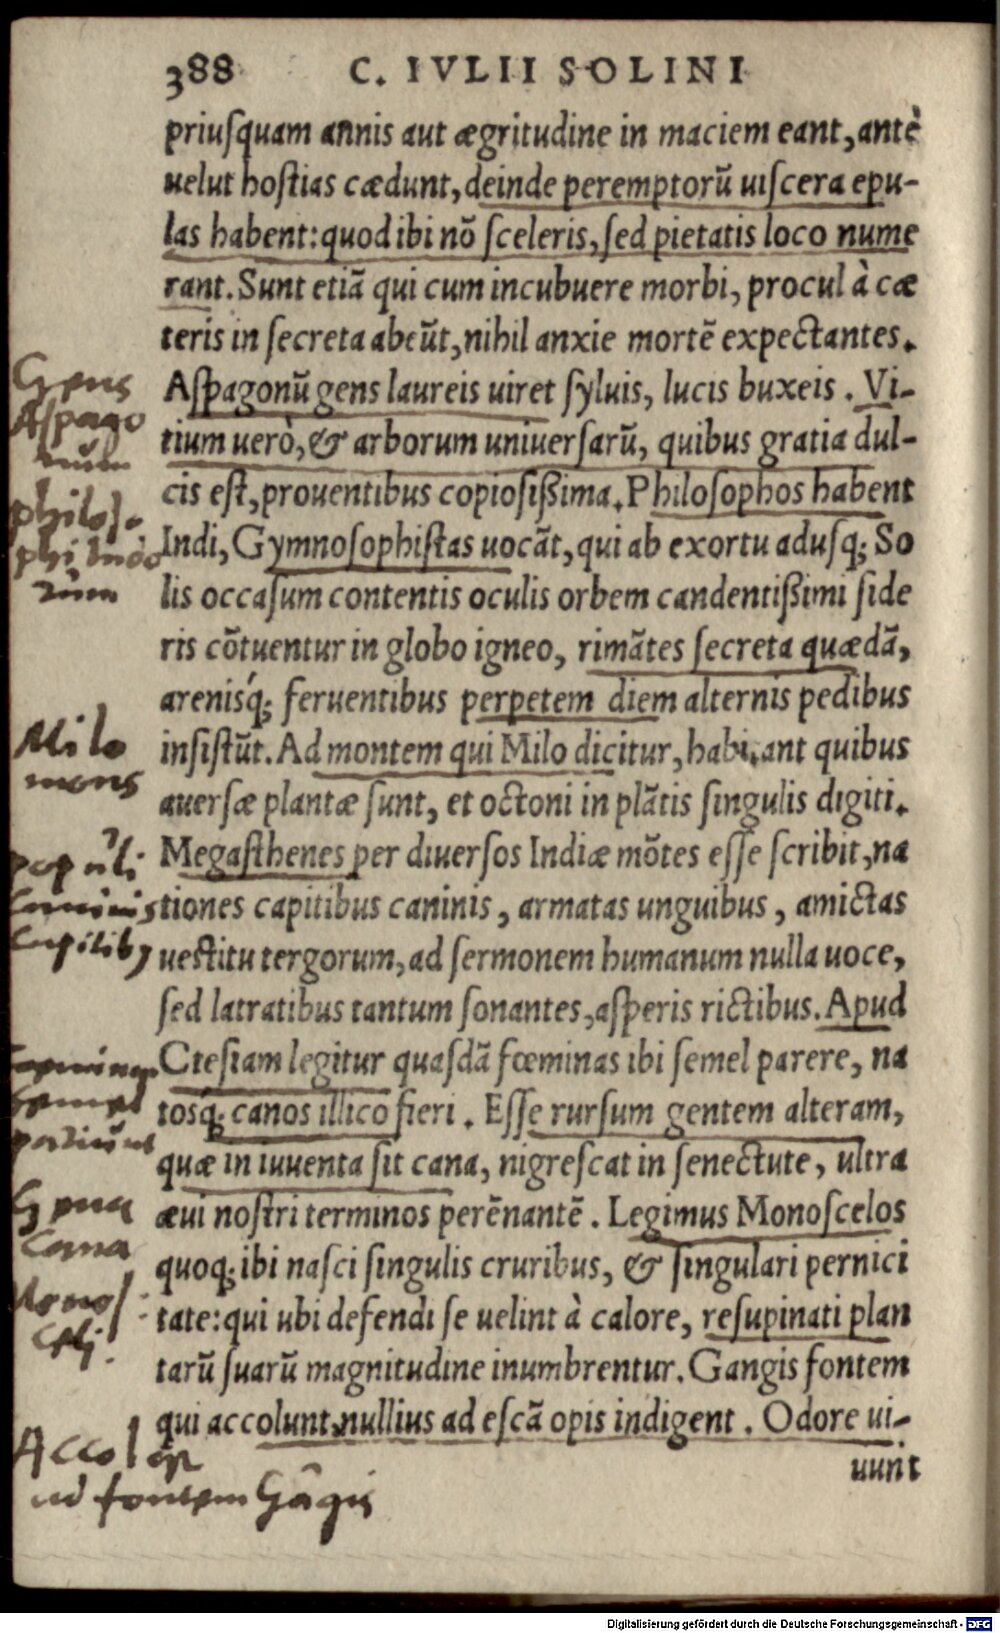 388 C. IVLII SOLINI
priuſquam annis aut ægritudine in maciem eant, antè
uelut hoſtias cædunt, deinde peremptorũ uiſcera epu-
las habent: quod ibi nõ ſceleris, ſed pietatis loco nume
rant. Sunt etiã qui cum incubuere morbi, procul à cæ
teris in ſecreta abeũt, nihil anxie mortẽ expectantes.
Aſpagonũ gens laureis uiret ſyluis, lucis buxeis. Vi-
tium uerò, & arborum uniuerſarũ, quibus gratia dul-
cis eſt, prouentibus copioſißima. Philoſophos habent
Indi, Gymnoſophiſtas uocãt, qui ab exortu aduſq; So
lis occaſum contentis oculis orbem candentißimi ſide
ris cõtuentur in globo igneo, rimãtes ſecreta quædã,
areniſq́; feruentibus perpetem diem alternis pedibus
inſiſtũt. Ad montem qui Milo dicitur, habitant quibus
auerſæ plantæ ſunt, et octoni in plãtis ſingulis digiti.
Megaſthenes per diuerſos Indiæ mõtes eſſe ſcribit, na
tiones capitibus caninis, armatas unguibus, amictas
ueſtitu tergorum, ad ſermonem humanum nulla uoce,
ſed latratibus tantum ſonantes, aſperis rictibus. Apud
Cteſiam legitur quaſdã fœminas ibi ſemel parere, na
toſq́; canos illico fieri. Eſſe rurſum gentem alteram,
quæ in iuuenta ſit cana, nigreſcat in ſenectute, ultra
æui noſtri terminos perẽnantẽ. Legimus Monoſcelos
quoq; ibi naſci ſingulis cruribus, & ſingulari pernici
tate: qui ubi defendi ſe uelint à calore, reſupinati plan
tarũ ſuarũ magnitudine inumbrentur. Gangis fontem
qui accolunt, nullius ad eſcã opis indigent. Odore ui-
uunt
Gens
Aſpago
num
philoſo
phi Indo
rum
Milo
mons
populi
caninis
capitibꝫ
fœminæ
semel
pariunt
Gena
cana
Monoſ
celi.
Accolæ
ad fontem Gãgis
Digitalisierung gefördert durch die Deutsche Forschungsgemeinschaft - DFG